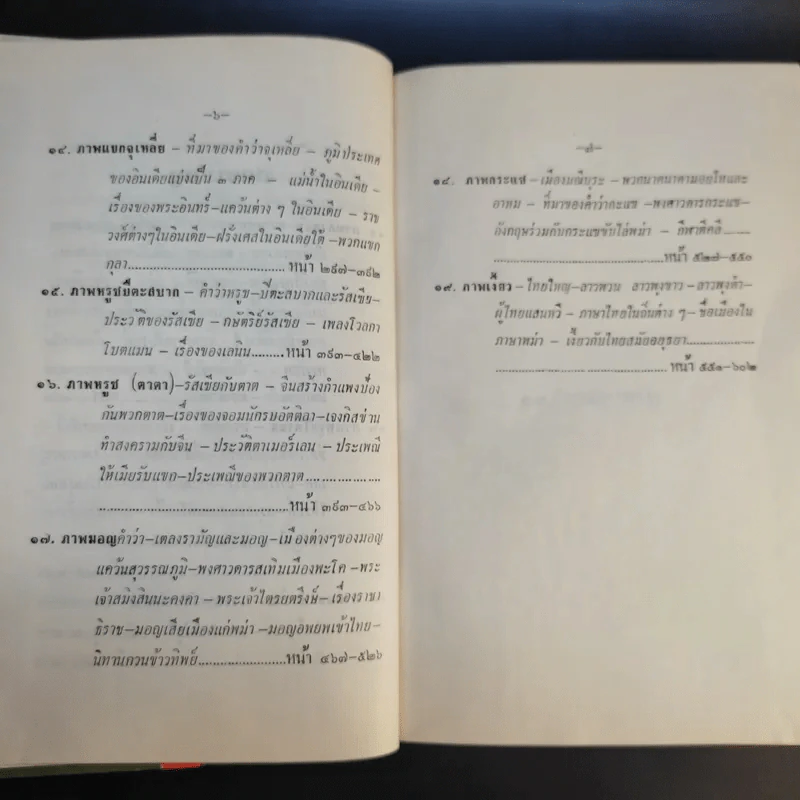 –๖–
๑๔. ภาพแขกจุเหลี่ย – ที่มาของคำว่าจุเหลี่ย – ภูมิประเทศ
ของอินเดียแบ่งเป็น ๓ ภาค – แม่น้ำในอินเดีย –
เรื่องของพระอินทร์ – แคว้นต่าง ๆ ในอินเดีย – ราช
วงศ์ต่างๆในอินเดีย–ฝรั่งเศสในอินเดียใต้ –พวกแขก
กุลา....................................... หน้า ๒๘๗–๓๙๒
๑๕. ภาพหรูชปีตะสบาก – คำว่าหรูช–ปีตะสบากและรัสเซีย–
ประวัติของรัสเซีย – กษัตริย์รัสเซีย – เพลงโวลกา
โบตแมน – เรื่องของเลนิน.........หน้า ๓๙๓–๔๒๒
๑๖. ภาพหรูช (ตาตา)–รัสเซียกับตาต – จีนสร้างกำแพงป้อง
กันพวกตาต–เรื่องของจอมนักรบอัตติลา–เจงกิสข่าน
ทำสงครามกับจีน – ประวัติตาเมอร์เลน – ประเพณี
ให้เมียรับแขก–ประเพณีของพวกตาต....................
...................................หน้า ๓๙๓–๔๖๖
๑๗. ภาพมอญคำว่า–เตลงรามัญและมอญ–เมืองต่างๆของมอญ
แคว้นสุวรรณภูมิ–พงศาวดารสเทิมเมืองพะโค –พระ
เจ้าสมิงสินนะคงคา – พระเจ้าไตรยตรึงษ์–เรื่องราชา
ธิราช–มอญเสียเมืองแก่พม่า –มอญอพยพเข้าไทย–
นิทานกวนข้าวทิพย์......................หน้า ๔๖๗–๕๒๖
–๗–
๑๘. ภาพกระแซ –เมืองมณีบุระ –พวกนาคนาคามอยไทและ
อาหม – ที่มาของคำว่ากะแซ –พงศาวดารกระแซ–
อังกฤษร่วมกับกระแซขับไล่พม่า – กีฬาตีคลี
...................................หน้า ๕๒๗–๕๕๐
๑๙. ภาพเงี้ยว –ไทยใหญ่–ลาวพวน ลาวพุงขาว –ลาวพุงดำ–
ผู้ไทยแสนหวี – ภาษาไทยในจีนต่าง ๆ–ชื่อเมืองใน
ภาษาพม่า – เงี้ยวกับไทยสมัยอยุธยา..................
................................... หน้า ๕๕๑–๖๐๒